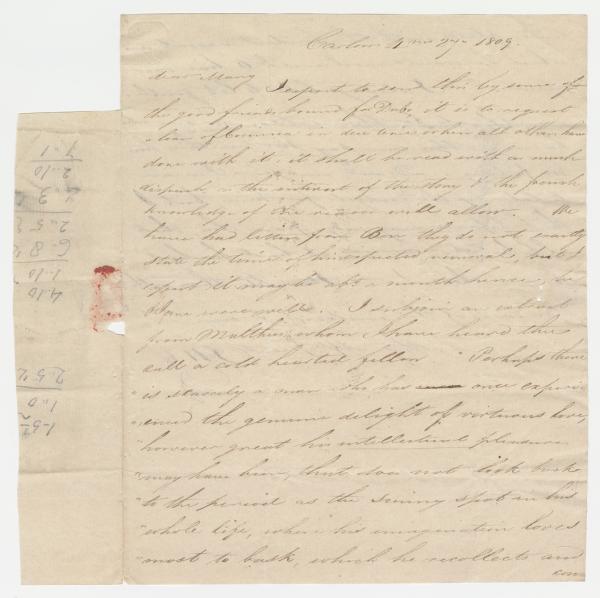 Carlow 4 mo 27 1809.
Dear Mary
I expect to send this by some of
the good friends bound for Dublin it is to request
a loan of Corinna in due time when all others have
done with it. it shall be read with as much
dispatch as the interest of the story & the french
knowledge of the reader will allow. We
have had letters from Ben they do not exactly
state the time of his expected removal, but I
expect it may be abt a month hence, he
& Jane were well. I subjoin an extract
from Malthus whom I have heard thee
call a cold hearted fellow "Perhaps there
"is scarcely a man who has once experi
"enced the genuine delight of virtuous love,
"however great his intellectual pleasures
"may have been, that does not look back
"to the period as the sunny spot in his
"whole life, where his imagination loves
"most to bask, which he recollects and
con
1.1
2.10
3
2.5
6.8
1.10
4.10
2.5½
1.0
1.5½